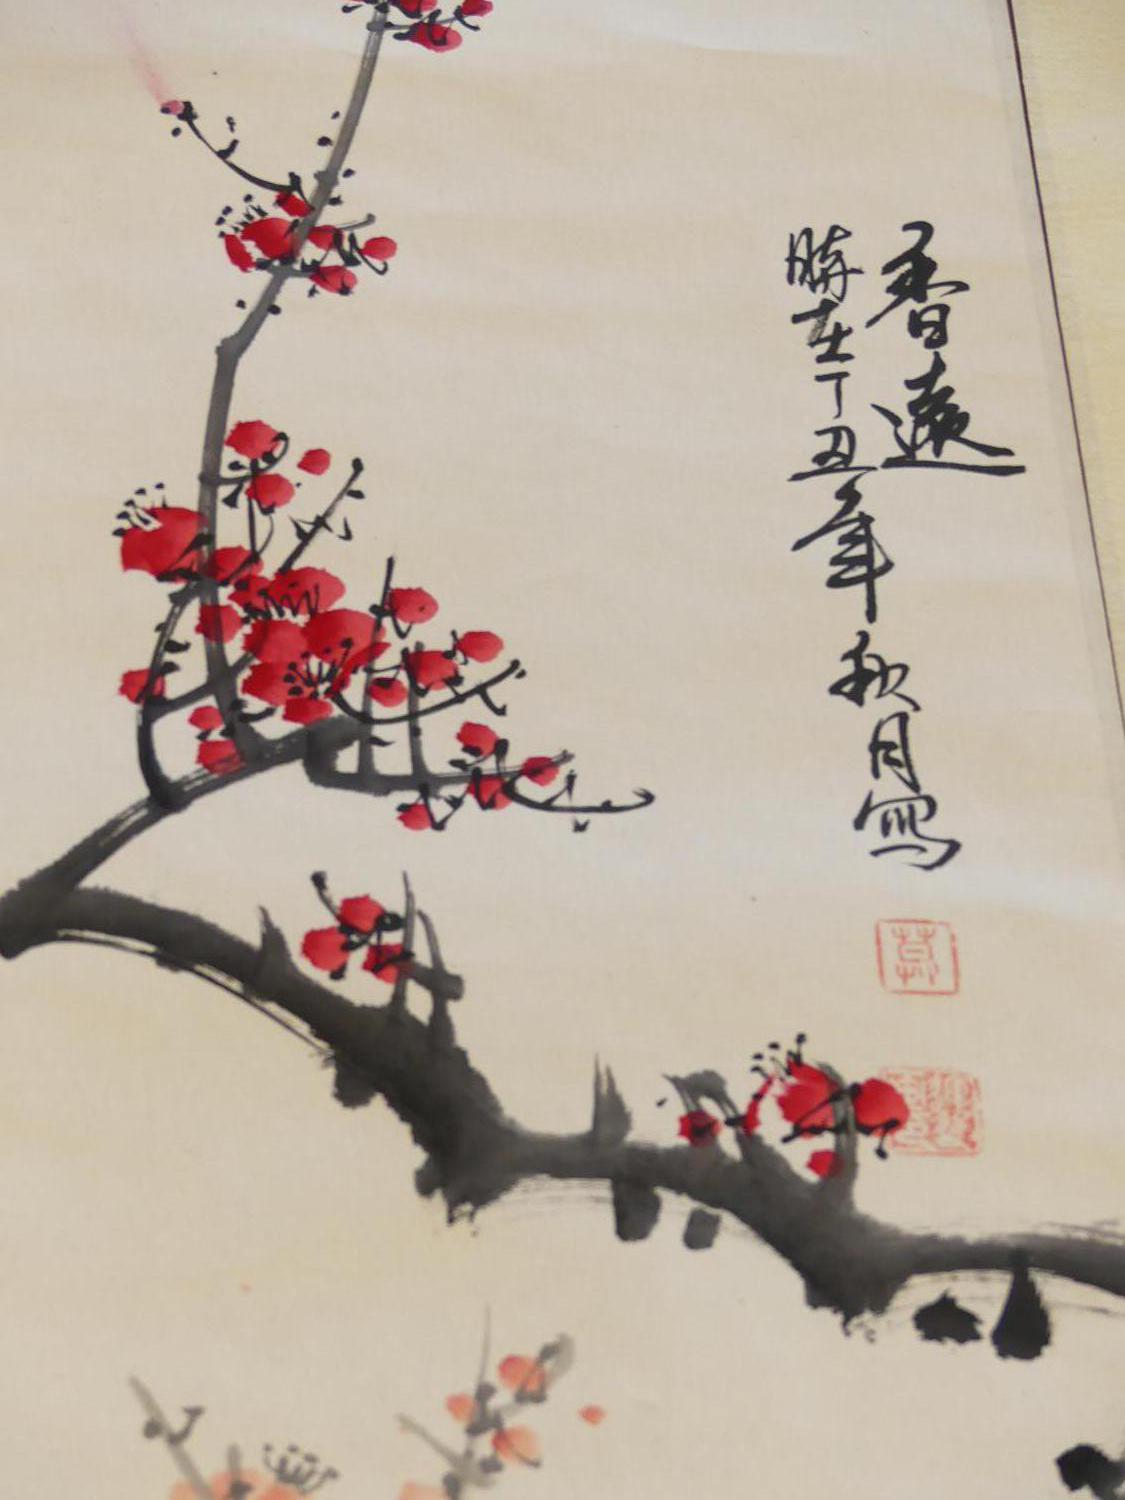 香遠
勝在丁丑年秋月寫